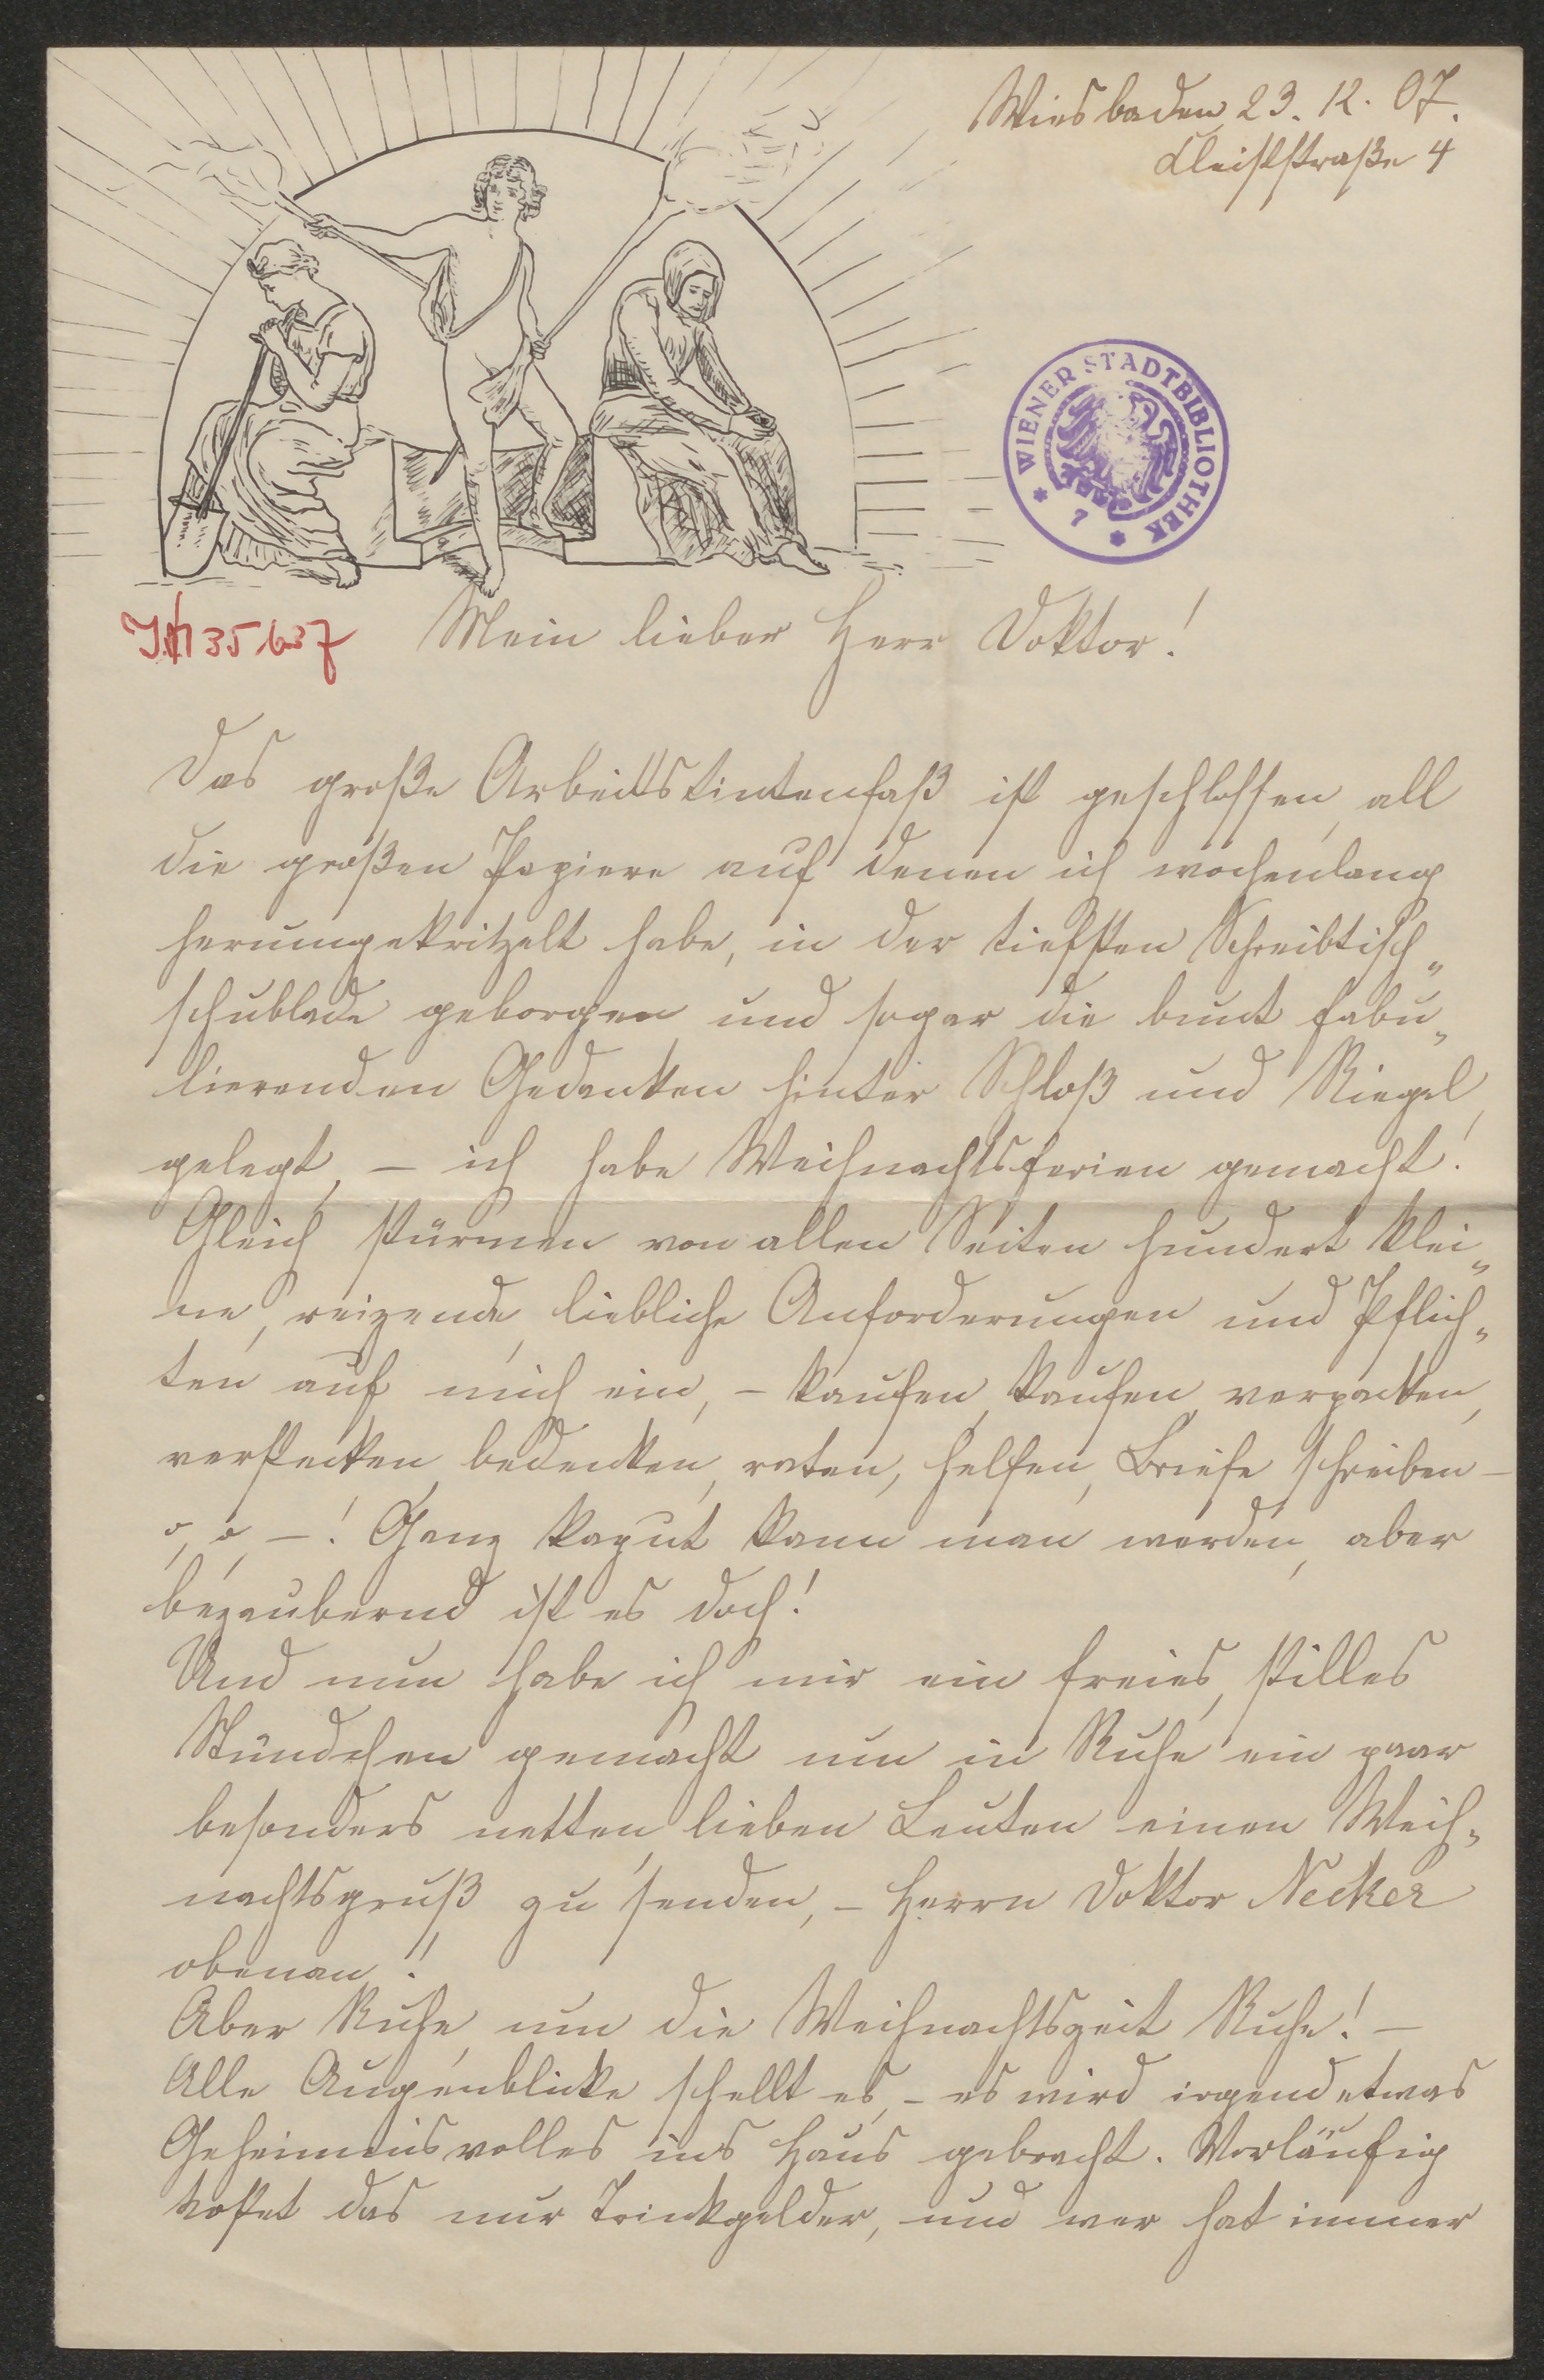 Wiesbaden 23. 12. 07.
Kleiststraße 4
WIENER STADTBIBLIOTHEK
7
I.N. 35637
Mein lieber Herr Doktor!
Das große Arbeitstintenfaß ist geschlossen, all
die großen Papiere auf denen ich wochenlang
herumgekritzelt habe, in der tiefsten Schreibtisch„
schublade geborgen und sogar die bunt fabu„
lierenden Gedanken hinter Schloß und Riegel
gelegt, – ich habe Weihnachtsferien gemacht!
Gleich stürmen von allen Seiten hundert klei„
ne, reizende, liebliche Anforderungen und Pflich„
ten auf mich ein, – kaufen, kaufen, verpacken,
verstecken, bedenken, raten, helfen, Briefe schreiben –
o, o, – ! Ganz kaput kann man werden, aber
bezaubernd ist es doch!
Und nun habe ich mir ein freies, stilles
Stündchen gemacht um in Ruhe ein paar
besonders netten, lieben Leuten einen Weih„
nachtsgruß zu senden, – Herrn Doktor Necker
obenan!
Aber Ruhe, um die Weihnachtszeit Ruhe! –
Alle Augenblicke schellt es, – es wird irgend etwas
Geheimnisvolles ins Haus gebracht. Vorläufig
kostet das nur Trinkgelder, und wer hat immer